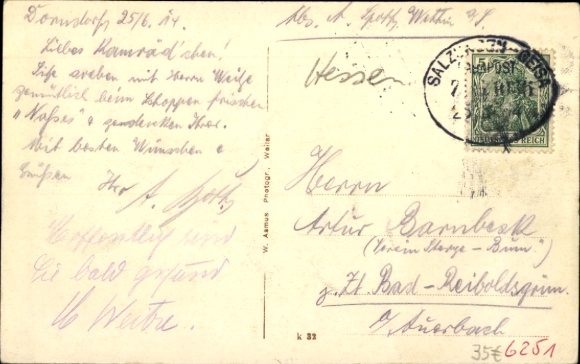 Dorndorf 25/6. 14.
Liebes Kamräd'chen!
Sitze soeben mit Herrn Weise
gemütlich beim Schoppen frischen
"Nasses" u. gedenken Ihrer.
Mit besten Wünschen u.
Grüßen
Ihr A.
Hoffentlich sind
Sie bald gesund
Abs. A.
Hessen
SALZUNGEN - GEISA
BAHNPOST
DEUTSCHES REICH
W. Asmus Photogr., Weiler
Herrn
Artur Barnbeck
(Verein "Sterge-Bum")
z. Zt. Bad-Reiboldsgrün
b/Auerbach
k 32
35€ 6251